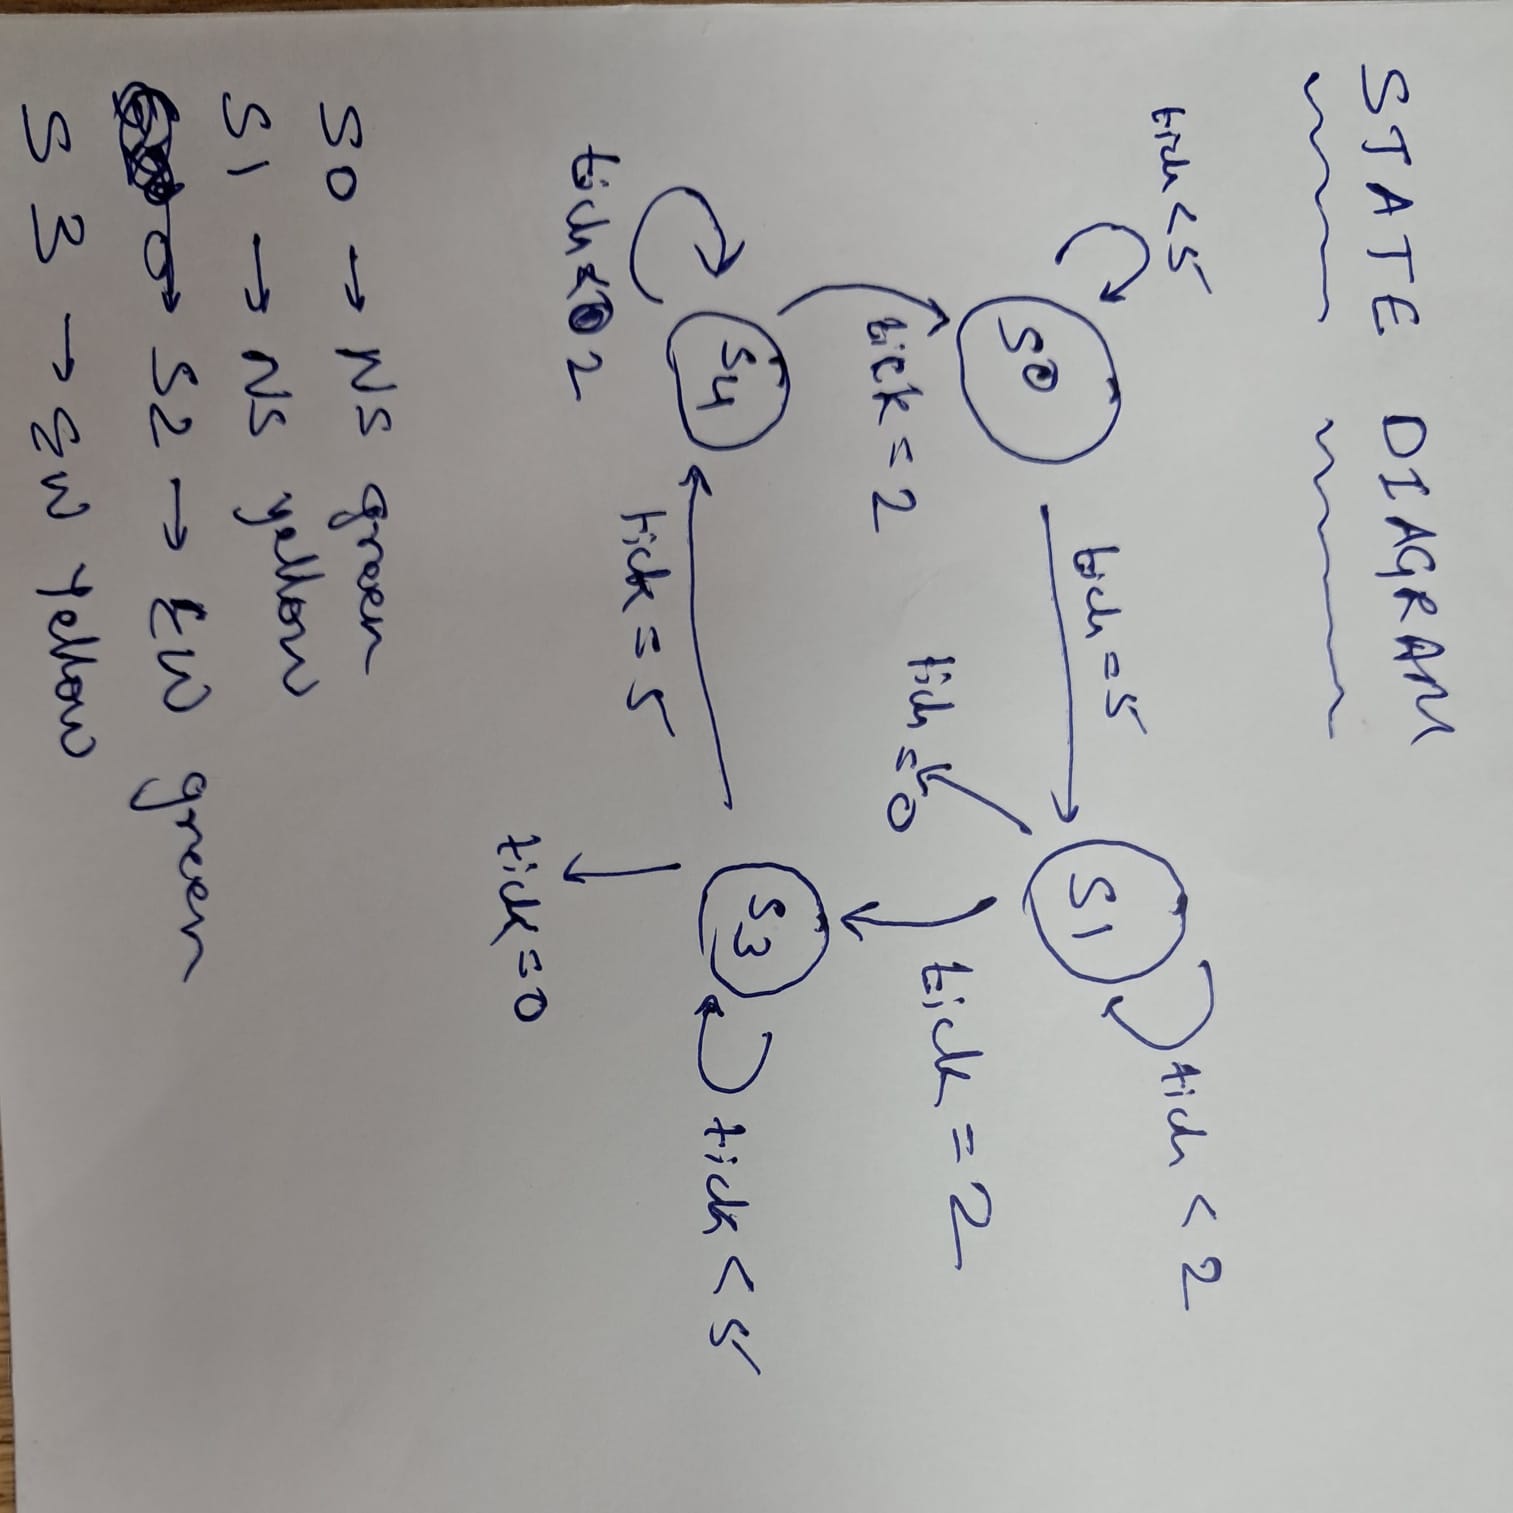 STATE DIAGRAM
tick < 5
tick = 5
tick < 2
S0
S1
tick = 2
tick = 0
tick = 2
S4
S3
tick < 5
tick = 5
tick < 2
tick = 0
S0 → NS green
S1 → NS yellow
S2 → EW green
S3 → EW yellow